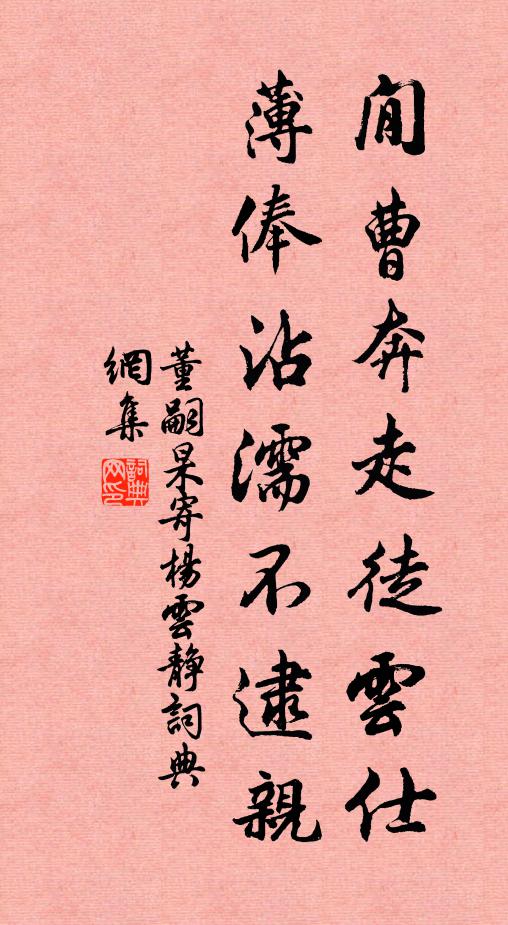 閒曹奔走徒雲仕
薄俸沾濡不逮親
董嗣杲寄楊雲靜詞典
網集
詞典
网印